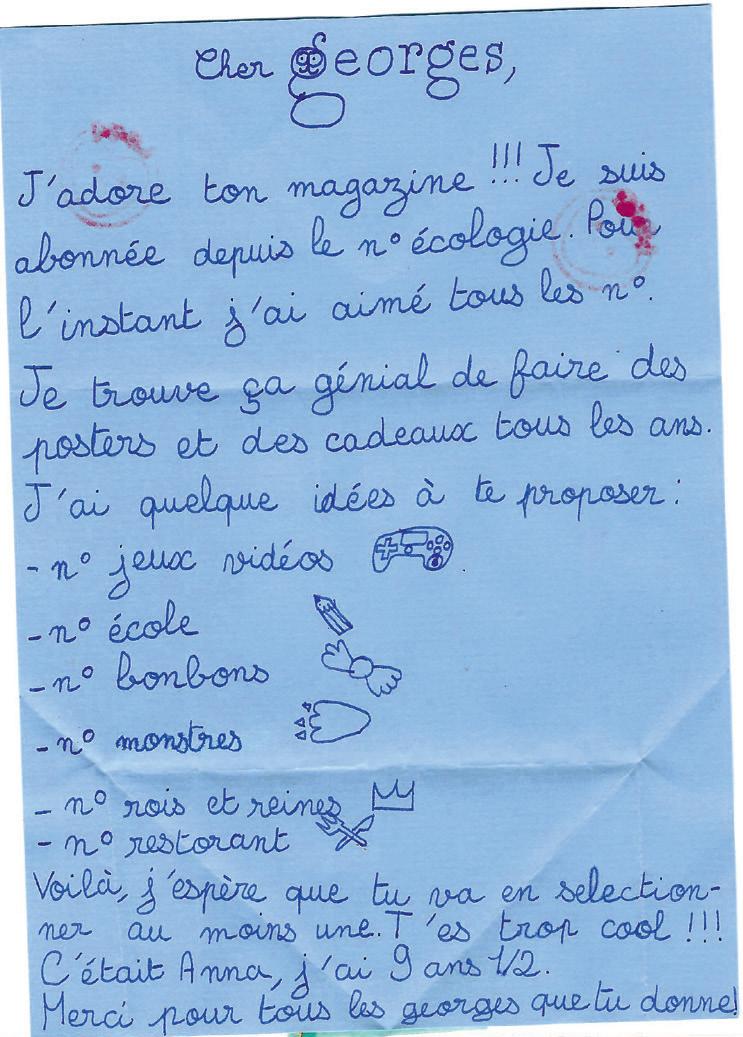 Cher Georges,
J'adore ton magazine !!! Je suis
abonnée depuis le n° écologie. Pour
l'instant j'ai aimé tous les n°.
Je trouve ça génial de faire des
posters et des cadeaux tous les ans.
J'ai quelque idées à te proposer :
- n° jeux vidéos
- n° école
- n° bonbons
- n° monstres
- n° rois et reines
- n° restorant
Voilà, j'espère que tu va en selection-
ner au moins une. T'es trop cool !!!
C'était Anna, j'ai 9 ans 1/2.
Merci pour tous les georges que tu donne!